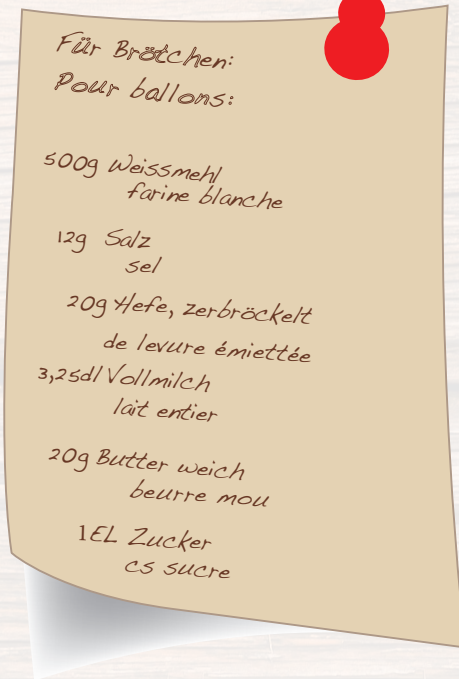 Für Brötchen:
Pour ballons:
500g Weissmehl
farine blanche
12g Salz
sel
20g Hefe, zerbröckelt
de levure émiettée
3,25dl Vollmilch
lait entier
20g Butter weich
beurre mou
1EL Zucker
cs sucre